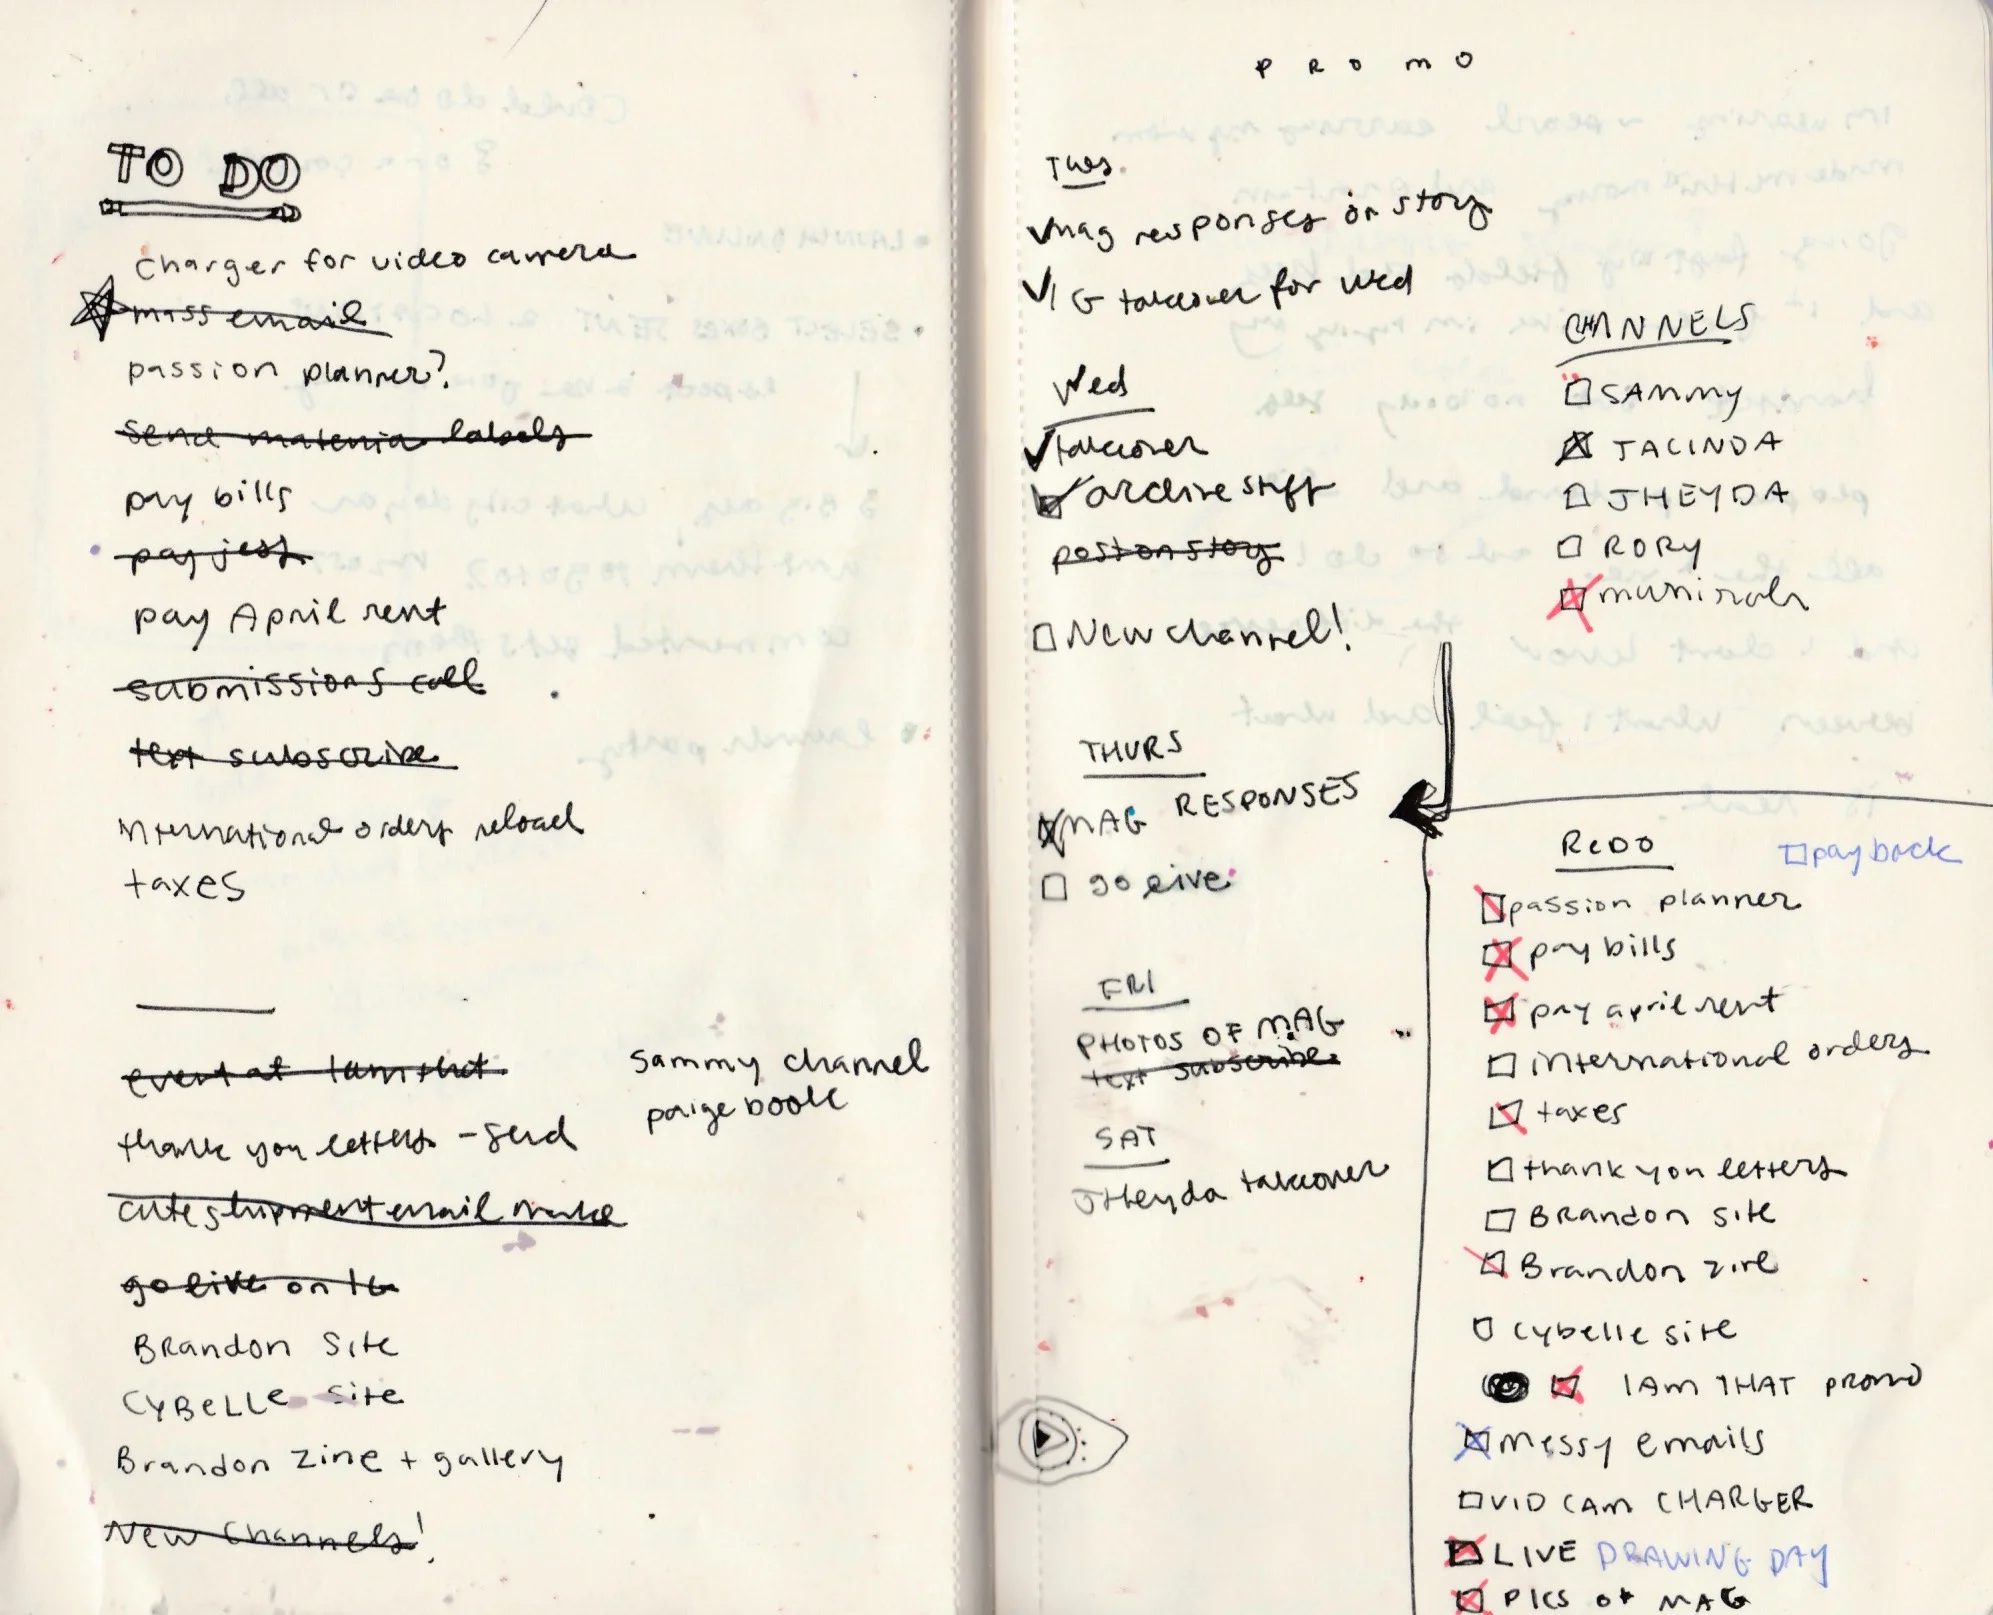 TO DO
charger for video camera
mass email
passion planner?
send materia labels
pay bills
pay jess
pay April rent
submissions call
text subscribe
international orders reload
taxes
event at Iamthat
thank you letters - send
cute shipment email make
go live on IG
Brandon Site
CYBELLE site
Brandon zine + gallery
New Channels!
Sammy channel
paige book
PROMO
Tues
mag responses on story
IG takeover for wed
Wed
takeover
archive stuff
post on story
New channel!
THURS
MAG RESPONSES
go live
FRI
PHOTOS OF MAG
text subscribe
SAT
JHeyda takeover
CHANNELS
SAMMY
JACINDA
JHEYDA
RORY
REDO
pay back
passion planner
pay bills
pay april rent
international orders
taxes
thank you letters
Brandon site
Brandon zine
cybelle site
I AM THAT PROMO
Messy emails
VID CAM CHARGER
LIVE DRAWING DAY
PICS OF MAG